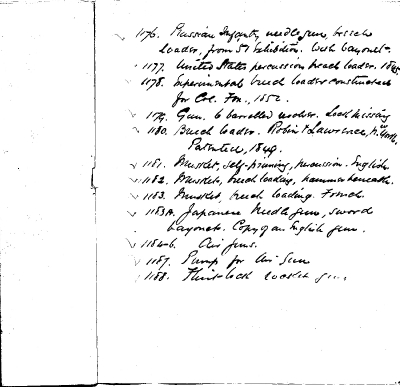 1176. Russian Infantry needle gun, breech
loader, from 51 Exhibition. With bayonet.
1177. United States percussion breech loader. 1845
1178. Experimental breech loader constructed
for Col. Fox, 1852.
1179. Gun. 6 barrelled revolver. Lock missing
1180. Breech loader. Robin & Lawrence,
Patented, 1849.
1181. Musket, self-priming, percussion. English.
1182. Musket, breech loading, hammer beneath.
1183. Musket, breech loading. French.
1183A. Japanese Needle gun, sword
bayonet. Copy of an English gun.
1184-6. Air guns.
1187. Pump for Air Gun
1188. Flint-lock gun.